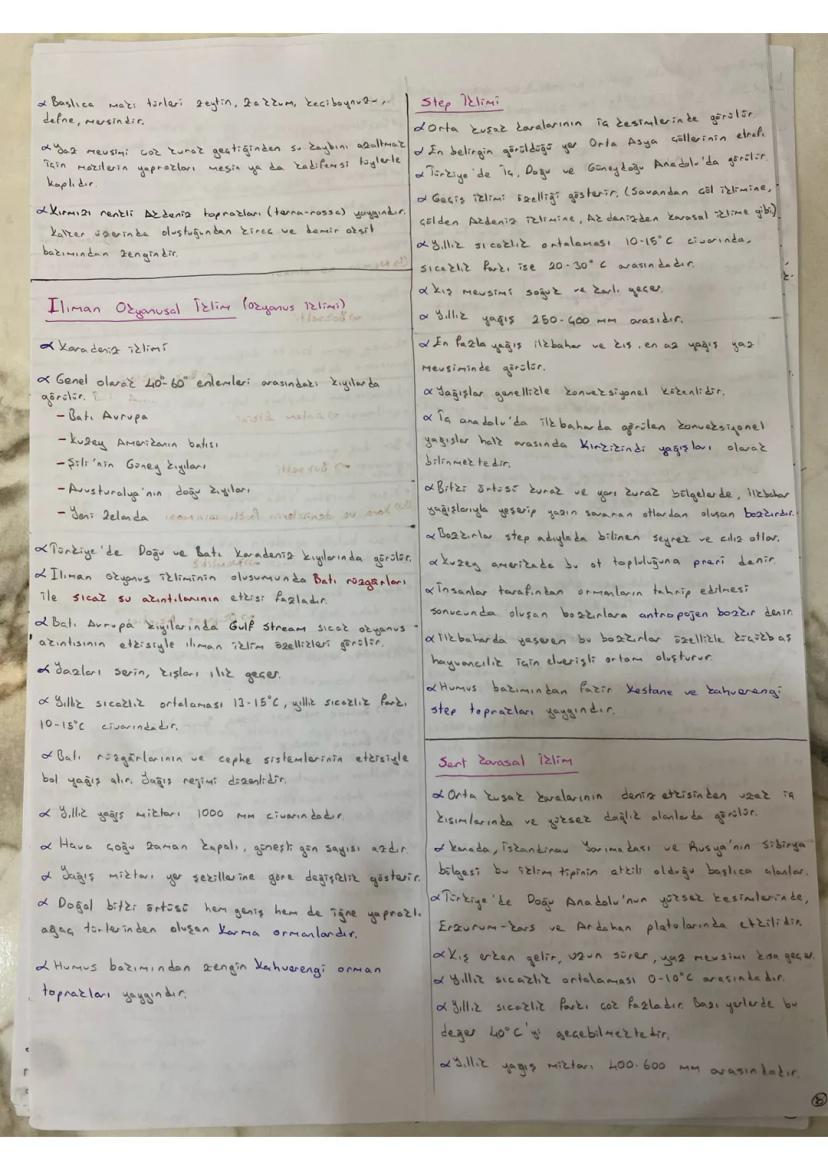 ∝ Başlıca maki türleri zeytin, zakkum, keçiboynuzu,
defne, mersindir.
∝ Yaz mevsimi çok kurak geçtiğinden su kaybını azaltmak
için makilerin yaprakları meşin ya da kadifemsi tüylerle
kaplıdır.
∝ Kırmızı renkli Akdeniz toprakları (terra-rossa) yaygındır.
Kalker üzerinde oluştuğundan kireç ve demir oksit
bakımından zengindir.
Ilıman Okyanusal İklim (okyanus iklimi)
∝ Karadeniz iklimi
∝ Genel olarak 40°-60° enlemleri arasındaki kıyılarda
görülür.
- Batı Avrupa
- Kuzey Amerikanın batısı
- Şili'nin Güney kıyıları
- Avusturalya'nın doğu kıyıları
- Yeni Zelanda
∝ Türkiye'de Doğu ve Batı Karadeniz kıyılarında görülür.
∝ Ilıman okyanus ikliminin oluşumunda Batı rüzgarları
ile sıcak su akıntılarının etkisi fazladır.
∝ Batı Avrupa kıyılarında Gulf Stream sıcak okyanus
akıntısının etkisiyle ılıman iklim özellikleri görülür.
∝ Yazları serin, kışları ılık geçer.
∝ Yıllık sıcaklık ortalaması 13-15°C, yıllık sıcaklık farkı
10-15°C civarındadır.
∝ Batı rüzgârlarının ve cephe sistemlerinin etkisiyle
bol yağış alır. Yağış rejimi düzenlidir.
∝ Yıllık yağış miktarı 1000 mm civarındadır.
∝ Hava çoğu zaman kapalı, güneşli gün sayısı azdır.
∝ Yağış miktarı yer şekillerine göre değişiklik gösterir.
∝ Doğal bitki örtüsü hem geniş hem de iğne yapraklı
ağaç türlerinden oluşan karma ormanlardır.
∝ Humus bakımından zengin kahverengi orman
toprakları yaygındır.
Step İklimi
∝ Orta kuşak karalarının iç kesimlerinde görülür.
∝ En belirgin görüldüğü yer Orta Asya çöllerinin etrafı.
∝ Türkiye'de İç, Doğu ve Güneydoğu Anadolu'da görülür.
∝ Geçiş iklimi özelliği gösterir. (Savandan çöl iklimine,
çölden Akdeniz iklimine, Akdenizden karasal iklime gibi)
∝ Yıllık sıcaklık ortalaması 10-15°C civarında,
sıcaklık farkı ise 20-30°C arasındadır.
∝ Kış mevsimi soğuk ve karlı geçer.
∝ Yıllık yağış 250-400 mm arasıdır.
∝ En fazla yağış ilkbahar ve kış, en az yağış yaz
mevsiminde görülür.
∝ Yağışlar genellikle konveksiyonel kökenlidir.
∝ İç anadolu'da ilkbaharda görülen konveksiyonel
yağışlar halk arasında Kırkikindi yağışları olarak
bilinmektedir.
∝ Bitki örtüsü kurak ve yarı kurak bölgelerde, ilkbahar
yağışlarıyla yeşerip yazın sararan otlardan oluşan bozkırdır.
∝ Bozkırlar step adıyla da bilinen seyrek ve cılız otlar.
∝ Kuzey amerikada bu ot topluluğuna preri denir.
∝ İnsanlar tarafından ormanların tahrip edilmesi
sonucunda oluşan bozkırlara antropojen bozkır denir.
∝ İlkbaharda yeşeren bu bozkırlar özellikle küçükbaş
hayvancılık için elverişli ortam oluşturur.
∝ Humus bakımından fakir kestane ve kahverengi
step toprakları yaygındır.
Sert Karasal İklim
∝ Orta kuşak karalarının deniz etkisinden uzak iç
kısımlarında ve yüksek dağlık alanlarda görülür.
∝ Kanada, İskandinav Yarımadası ve Rusya'nın Sibirya
bölgesi bu iklim tipinin etkili olduğu başlıca alanlar.
∝ Türkiye'de Doğu Anadolu'nun yüksek kesimlerinde,
Erzurum-kars ve Ardahan platolarında etkilidir.
∝ Kış erken gelir, uzun sürer, yaz mevsimi kısa geçer.
∝ Yıllık sıcaklık ortalaması 0-10°C arasındadır.
∝ Yıllık sıcaklık farkı çok fazladır. Bazı yerlerde bu
değer 40°C'yi geçebilmektedir.
∝ Yıllık yağış miktarı 400-600 mm arasındadır.